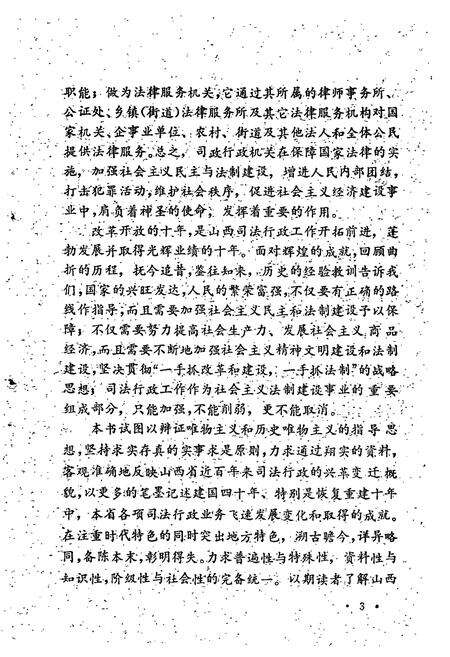 职能；做为法律服务机关，它通过其所属的律师事务所、
公证处、乡镇（街道）法律服务所及其它法律服务机构对国
家机关、企事业单位、农村、街道及其他法人和全体公民
提供法律服务。总之，司政行政机关在保障国家法律的实
施，加强社会主义民主与法制建设，增进人民内部团结，
打击犯罪活动，维护社会秩序，促进社会主义经济建设事
业中，肩负着神圣的使命，发挥着重要的作用。
改革开放的十年，是山西司法行政工作开拓前进，蓬
勃发展并取得光辉业绩的十年。面对辉煌的成就，回顾曲
折的历程，抚今追昔，鉴往知来，历史的经验教训告诉我
们，国家的兴旺发达，人民的繁荣富强，不仅要有正确的路
线作指导，而且需要加强社会主义民主和法制建设予以保
障；不仅需要努力提高社会生产力、发展社会主义商品
经济，而且需要不断地加强社会主义精神文明建设和法制
建设，坚决贯彻“一手抓改革和建设，一手抓法制”的战略
思想；司法行政工作作为社会主义法制建设事业的重要
组成部分，只能加强，不能削弱，更不能取消。
本书试图以辩证唯物主义和历史唯物主义的指导思
想，坚持求实存真的实事求是原则，力求通过翔实的资料，
客观准确地反映山西省近百年来司法行政的兴革变迁概
貌，以更多的笔墨记述建国四十年、特别是恢复重建十年
中，本省各项司法行政业务飞速发展变化和取得的成就。
在注重时代特色的同时突出地方特色，溯古瞻今，详异略
同，备陈本末，彰明得失。力求普遍性与特殊性，资料性与
知识性，阶级性与社会性的完备统一。以期读者了解山西
• 3 •